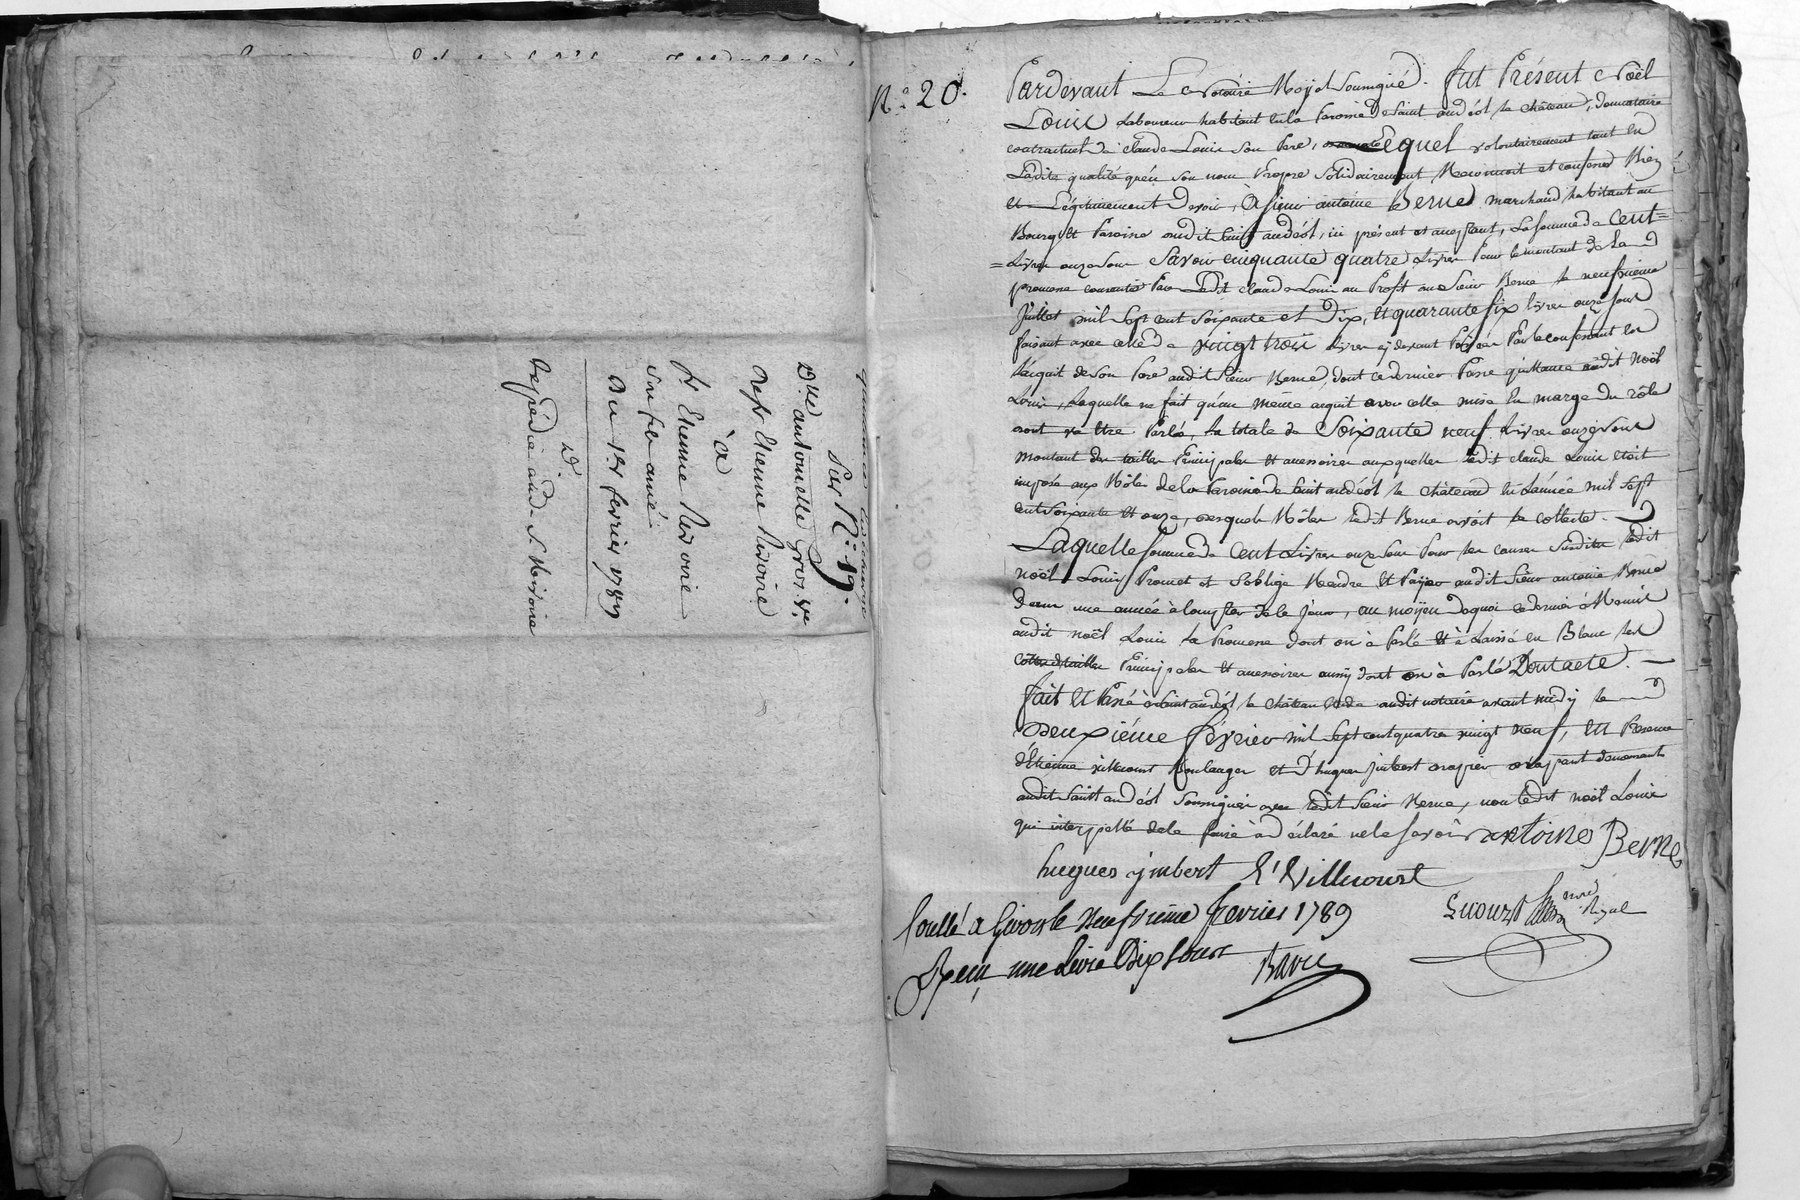 quittance
Sur N.° 19.
D.lle antoinette Gros v.ve
de s.r Etienne Rivoire
à
s.r Etienne Rivoire
son fils ainé
Du 1.er fevrier 1789
Expédiée aud. s. Rivoire
N.° 20.
Pardevant Le Notaire Royal Soussigné. fut Présent Noël
Louis Laboureur habitant en la Paroisse de Saint andéol le château, donnataire
contractuel de claude Louis Son Pere, Lequel volontairement tant en
Ladite qualité qu'en son nom Propre Solidairement Reconnoit et confesse Bien
et Légitimement Devoir, à Sieur antoine Berne marchand habitant au
Bourg et Paroisse dudit Saint andéol, ici présent et acceptant, La Somme de Cent
Livres onze Sous Savoir cinquante quatre Livres Pour le montant de La
promesse consentie Par Ledit claude Louis au Profit dud. Sieur Berne le neufvieme
Juillet mil Sept cent Soixante et Dix, et quarante six livres onze sous
faisant avec celle de vingt trois Livres cy devant Payées Par le confessant en
l'acquit de son Pere audit Sieur Berne, dont ce dernier Passe quittance audit Noël
Louis, Laquelle ne fait qu'un même acquit avec celle mise En marge du rôle
dont va être Parlé, La totale de Soixante neuf Livres onze sous
montant des tailles Principales et accessoires auxquelles Ledit claude Louis étoit
imposé aux Rôles de la Paroisse de Saint andéol le château En L'année mil Sept
cent Soixante et onze, desquels Rôles Ledit Berne avoit La collecte.
Laquelle Somme de Cent Livres onze Sous Pour les causes Susdites Ledit
Noël Louis Promet et S'oblige Rendre et Payer audit Sieur antoine Berne
Dans une année à compter de ce jour, au moyen de quoi ce dernier à Remis
audit Noël Louis La Promesse dont on à Parlé et à Laissé en Blanc les
Cottes de tailles Principales et accessoires aussi dont on à Parlé Dont acte.
fait et Passé à Saint andéol le château Etude dudit notaire avant midy le
Deuxiéme février mil Sept cent quatre vingt neuf, en Presence
d'Etienne villecourt Boulanger et d'hugues imbert drapier demeurants
audit Saint andéol Soussignés avec Ledit Sieur Berne, non Ledit Noël Louis
qui interpellé de le faire à déclaré ne le Savoir antoine Berne
hugues ymbert E. Villecourt
Not.re Royal
Conllé a Givors le Neufvième fevrier 1789
Reçu une Livre Dix Sous